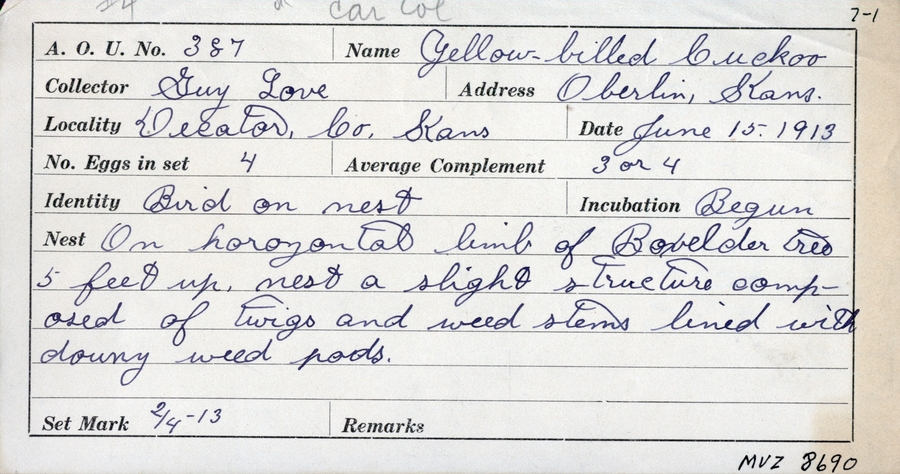 Car Col
7-1
A. O. U. No. 387 Name Yellow-billed Cuckoo
Collector Guy Love Address Oberlin, Kans.
Locality Decator, Co. Kans Date June 15. 1913
No. Eggs in set 4 Average Complement 3 or 4
Identity Bird on nest Incubation Begun
Nest On horozontal limb of Boxelder tree
5 feet up, nest a slight structure comp-
osed of twigs and weed stems lined with
downy weed pods.
Set Mark 2/4-13 Remarks
MVZ 8690